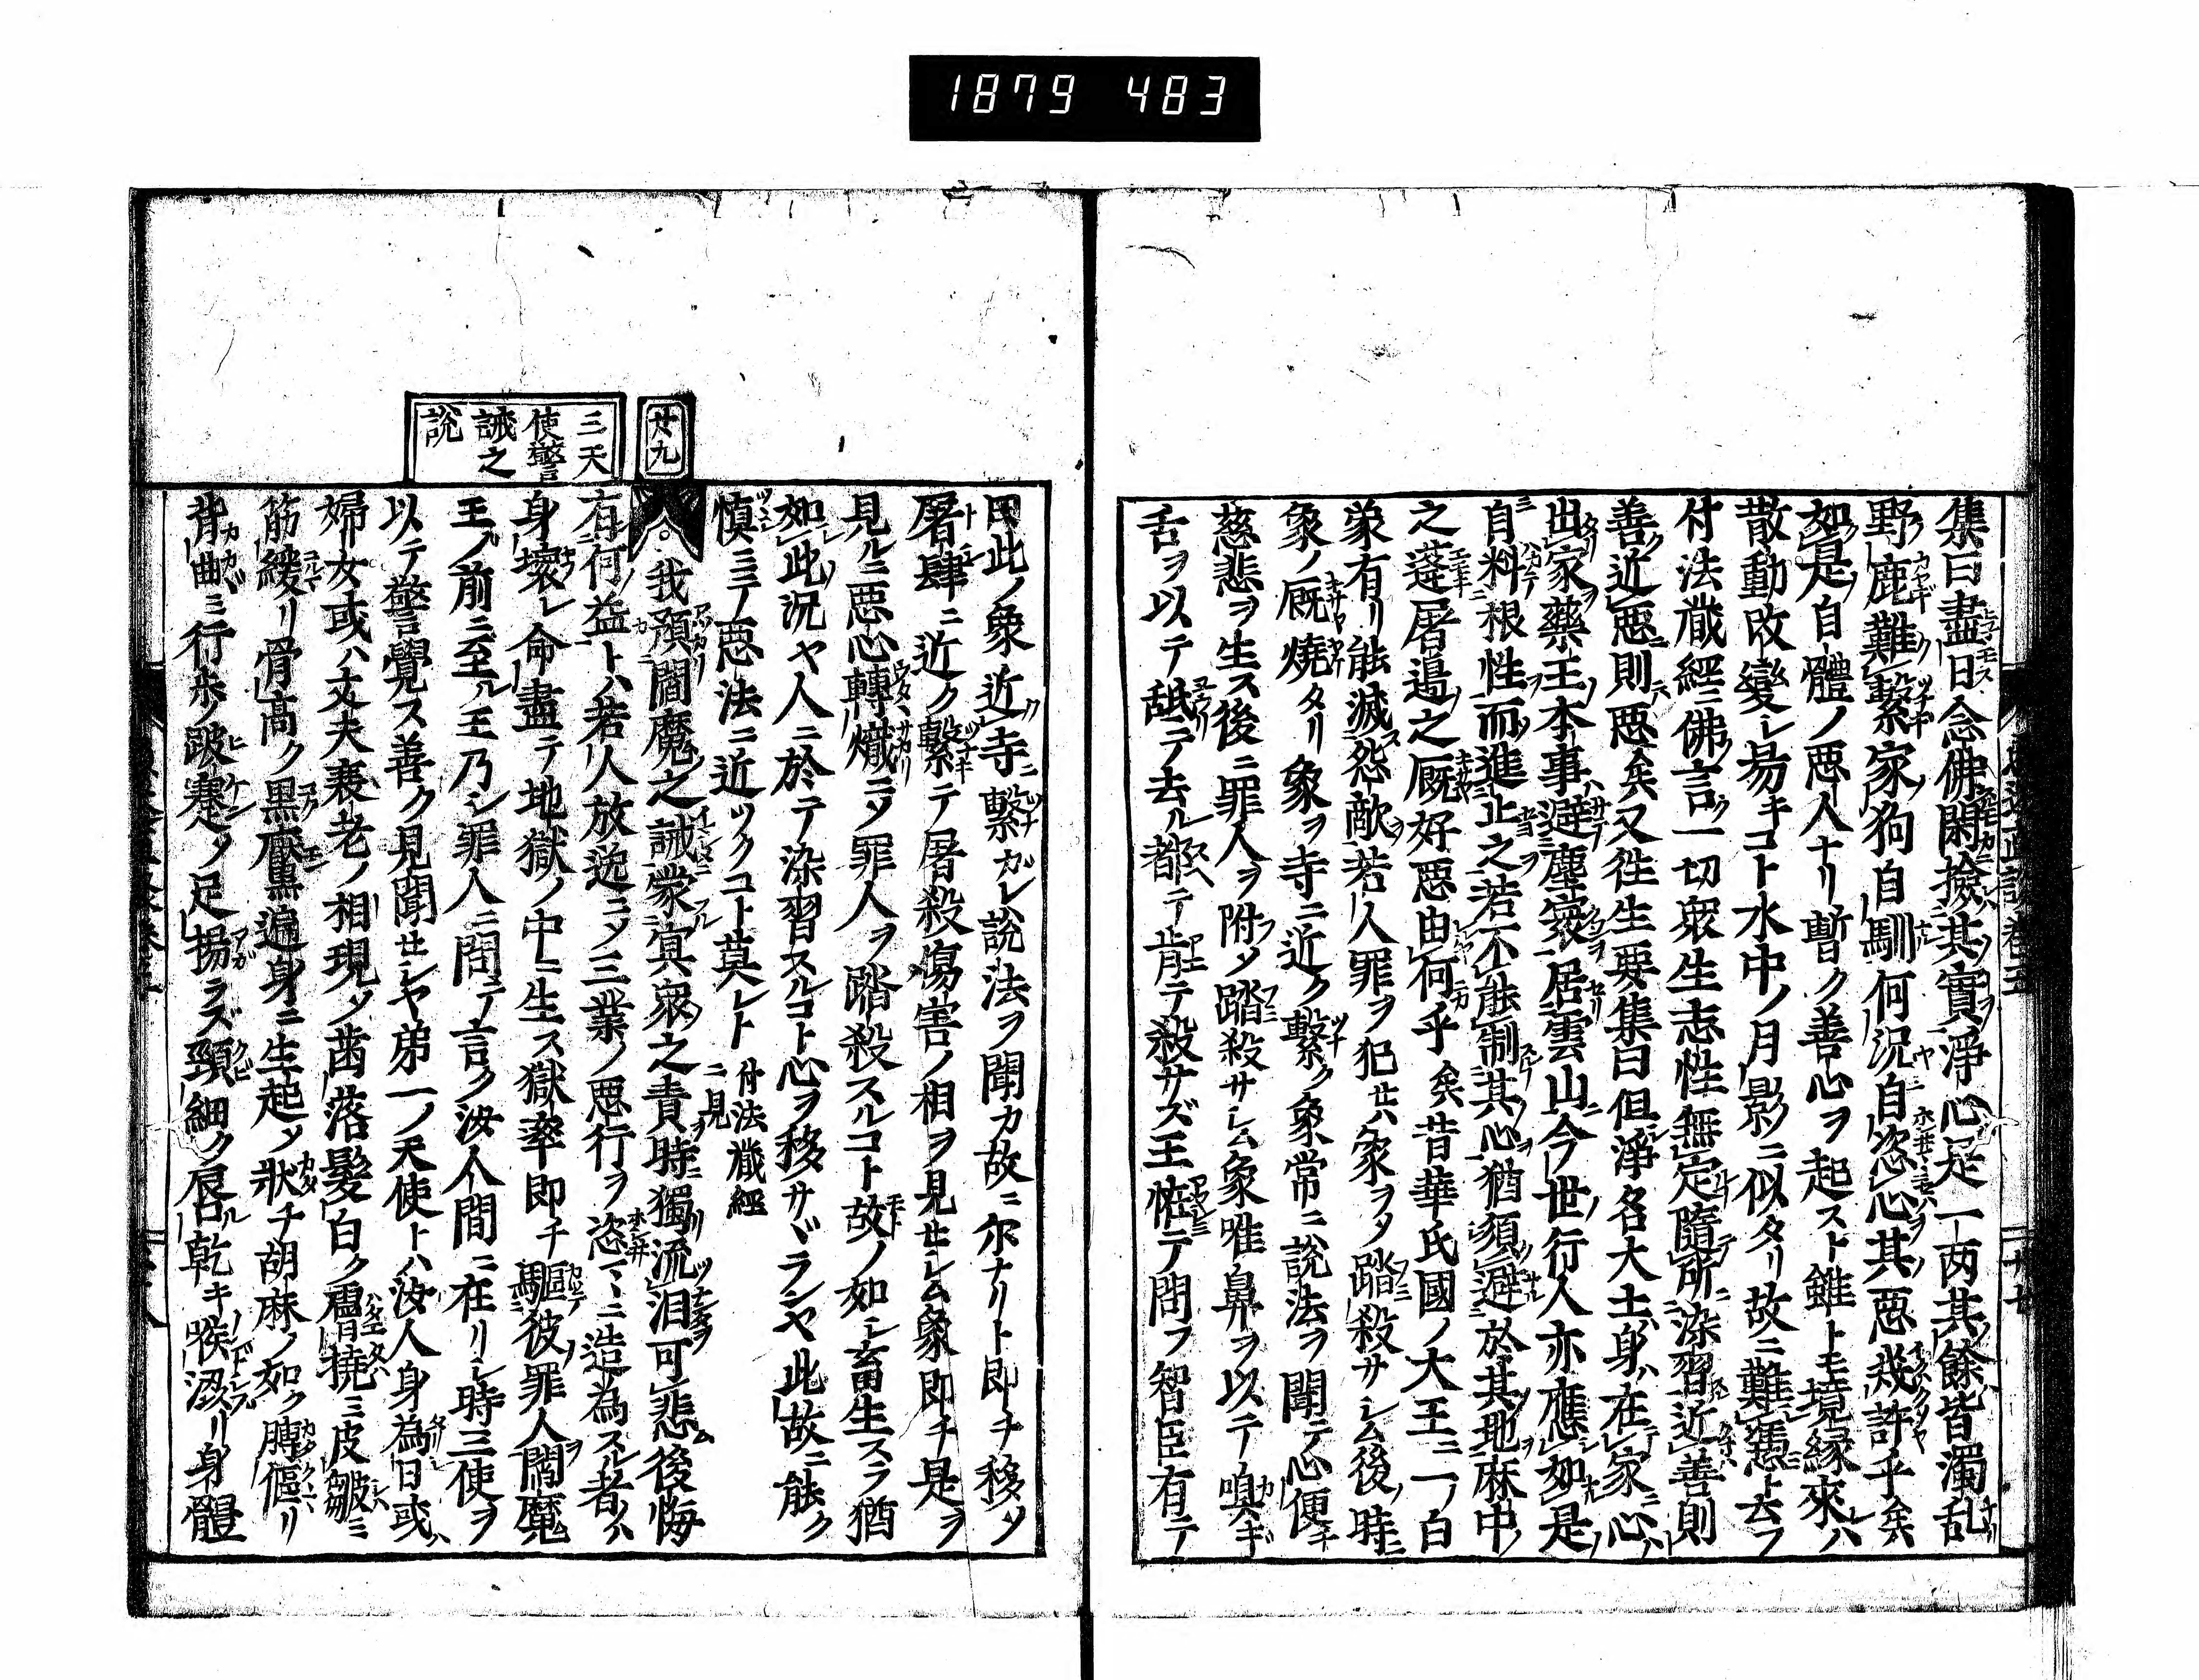 1879 483
集曰盡日念佛閑撿其實淨心是一両其餘皆濁乱
野鹿難繋家狗自馴何況自恣心其悪幾許乎矣
如是自體ノ悪人ナリ暫ク善心ヲ起スト雖トモ境縁來ハ
散動改變レ易キコト水中ノ月影ニ似タリ故ニ難憑ト云フ
付法藏經ニ佛言ク一切衆生志性無定隨所染習近善則
善近悪則悪矣又徃生要集曰但淨名大士身在家心
出家藥王本事避塵寰居雲山今世行人亦應如是
自料根性而進止之若不能制其心猶須避於其地麻中
之蓬屠邉之厩好悪由何乎矣昔華氏國ノ大王ニ一ノ白
象有リ能滅怨敵若人罪ヲ犯セハ象ヲシテ踏殺サレム後時
象ノ厩燒タリ象ヲ寺ニ近ク繋ク象常ニ説法ヲ聞テ心便チ
慈悲ヲ生ス後ニ罪人ヲ附メ踏殺サレム象唯鼻ヲ以テノ嗅ギ
舌ヲ以テ舐テ去ル都テ肯テ殺サズ王恠テ問フ智臣有テ
曰此ノ象近寺繋ガレ説法ヲ聞カ故ニ尓ナリト即チ移シ
屠肆ニ近ク繋テ屠殺傷害ノ相ヲ見セレム象即チ是ヲ
見ルニ悪心轉熾ニシテ罪人ヲ踏殺スルコト故ノ如レ畜生スラ猶
如此況ヤ人ニ於テ染習スルコト心ヲ移サヾランヤ此故ニ能ク
慎ミテ悪法ニ近ツクコト莫レト 付法藏經ニ見
廿九
三天使警誡之説
我預閻魔之誡蒙冥衆之責時獨流泪可悲後悔
有何益トハ若人放逸ニシテ三業ノ悪行ヲ恣マヽニ造為スル者ハ
身壞レ命盡テ地獄ノ中ニ生ス獄率即チ驅彼罪人閻魔
王ノ前ニ至ル王乃シ罪人ニ問テ言ク汝人間ニ在リレ時三使ヲ
以テ警覺ス善ク見聞セレヤ弟一ノ天使トハ汝人身為日或ハ
婦女或ハ丈夫衰老ノ相現メ歯落髪白ク膚撓ミ皮皺ミ
筋緩リ骨高ク黒黶遍身ニ生起メ狀チ胡麻ノ如ク膊傴リ
背曲ミ行歩ノ跛蹇メ足揚ラズ頸細ク唇乾キ喉澁リ身體